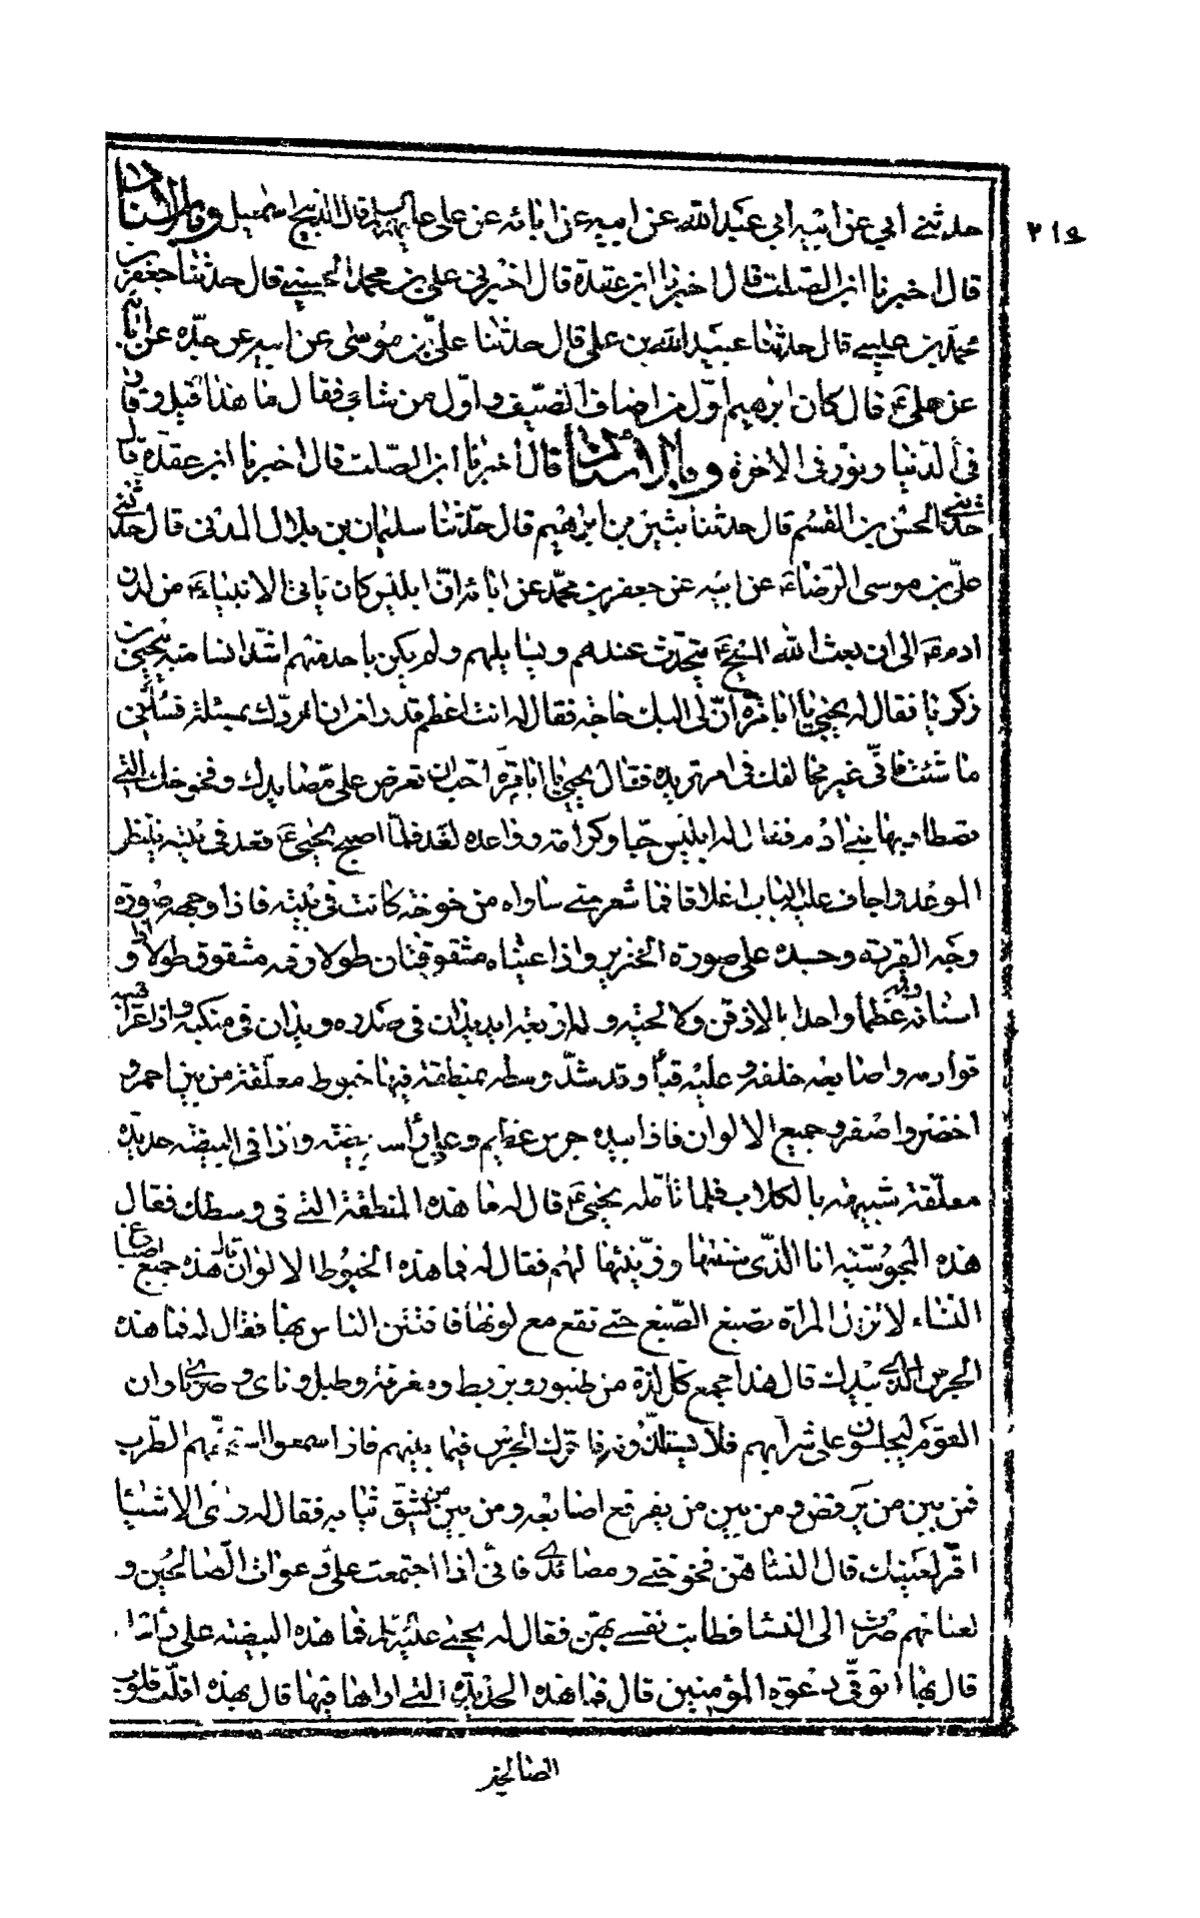 ٢١٥
حدثني أبي عن أبيه أبي عبد الله عن أبيه عن ابائه عن علي عليه السلام قال الذبيح اسمعيل وبالاسناد
قال اخبرنا ابن الصلت قال اخبرنا ابن عقدة قال اخبرني علي بن محمد الحسيني قال حدثنا جعفر بن
محمد بن عيسى قال حدثنا عبيد الله بن علي قال حدثنا علي بن موسى عن ابيه عن جده عن ابائه
عن علي ع قال كان ابرهيم اول من اضاف الضيف و اول من شاب فقال ما هذا قيل وقار
في الدنيا و نور في الاخرة وبالاسناد قال اخبرنا ابن الصلت قال اخبرنا ابن عقدة قال
حدثني الحسن بن القسم قال حدثنا بثير بن ابرهيم قال حدثنا سليمان بن بلال المدني قال حدثني
علي بن موسى الرضا ع عن ابيه عن جعفر بن محمد عن ابائه ان ابليس كان ياتي الانبياء ع من لدن
ادم ع الى ان بعث الله المسيح ع يتحدث عندهم و يسايلهم و لم يكن باحد منهم اشد انسا منه بيحيى بن
زكريا فقال له يحيى يا ابا مرة ان لي اليك حاجة فقال له انت اعظم قدرا من ان اردك بمسئلة فسلني
ما شئت فاني غير مخالفك في امر تريده فقال يحيى يا ابا مرة احب ان تعرض علي مصايدك و فخوخك التي
تصطاد بها بني ادم فقال له ابليس حبا و كرامة و واعده لغد فلما اصبح يحيى ع قعد في بيته ينتظر
الموعد و اجاف عليه الباب اغلاقا فما شعر حتى ساواه من خوخة كانت في بيته فاذا وجهه صورة
وجه القردة و جسده على صورة الخنزير و اذا عيناه مشقوقتان طولا و فمه مشقوق طولا و اذا
اسنانه و فمه عظما واحدا بلا ذقن و لا لحية و له اربعة ايد يدان في صدره و يدان في منكبه و اذا عراقيبه
قوادمه و اصابعه خلفه و عليه قباء و قد شد وسطه بمنطقة فيها خيوط معلقة من بين احمر و
اخضر و اصفر و جميع الالوان فاذا بيده جرس عظيم و على رأسه بيضة و اذا في البيضة حديدة
معلقة شبيهة بالكلاب فلما تأمله يحيى ع قال له ما هذه المنطقة التي في وسطك فقال
هذه المجوسية انا الذي سننتها و زينتها لهم فقال له فما هذه الخيوط الالوان قال هذه جميع اصباغ
النساء لا تزال المراة تصبغ الصبغ حتى تقع مع لونها فافتتن الناس بها فقال له فما هذه
الجرس الذي بيدك قال هذا مجمع كل لذة من طنبور و بربط و معزفة و طبل و ناي و صرناي و ان
القوم ليجلسون على شرابهم فلا يستلذونه فاحرك الجرس فيما بينهم فاذا سمعوا استخفهم الطرب
فمن بين من يرقص و من بين من يفرقع اصابعه و من بين من يشق ثيابه فقال له و اي الاشياء
اقر لعينك قال النساء هن فخوخي و مصائدي فاني اذا اجتمعت علي دعوات الصالحين و
لعناتهم صرت الى النساء فطابت نفسي بهن فقال له يحيى عليه السلام فما هذه البيضة على رأسك
قال بها اتوقى دعوة المؤمنين قال فما هذه الحديدة التي اراها فيها قال بهذه اقلب قلوب
الصالحين